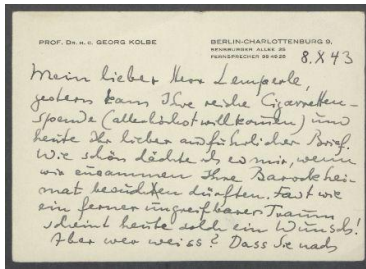 PROF. DR. H. C. GEORG KOLBE
BERLIN-CHARLOTTENBURG 9,
SENSBURGER ALLEE 25
FERNSPRECHER 99 46 25
8.X 43
Mein lieber Herr Lemperle,
gestern kam Ihre reiche Cigaretten-
spende (allerhöchst willkommen) und
heute Ihr lieber ausführlicher Brief.
Wie schön dächte ich es mir, wenn
wir zusammen Ihre Barockhei-
mat besuchen dürften. Fast wie
ein ferner ungreifbarer Traum
scheint heute solch ein Wunsch!
Aber wer weiss? Dass Sie nach